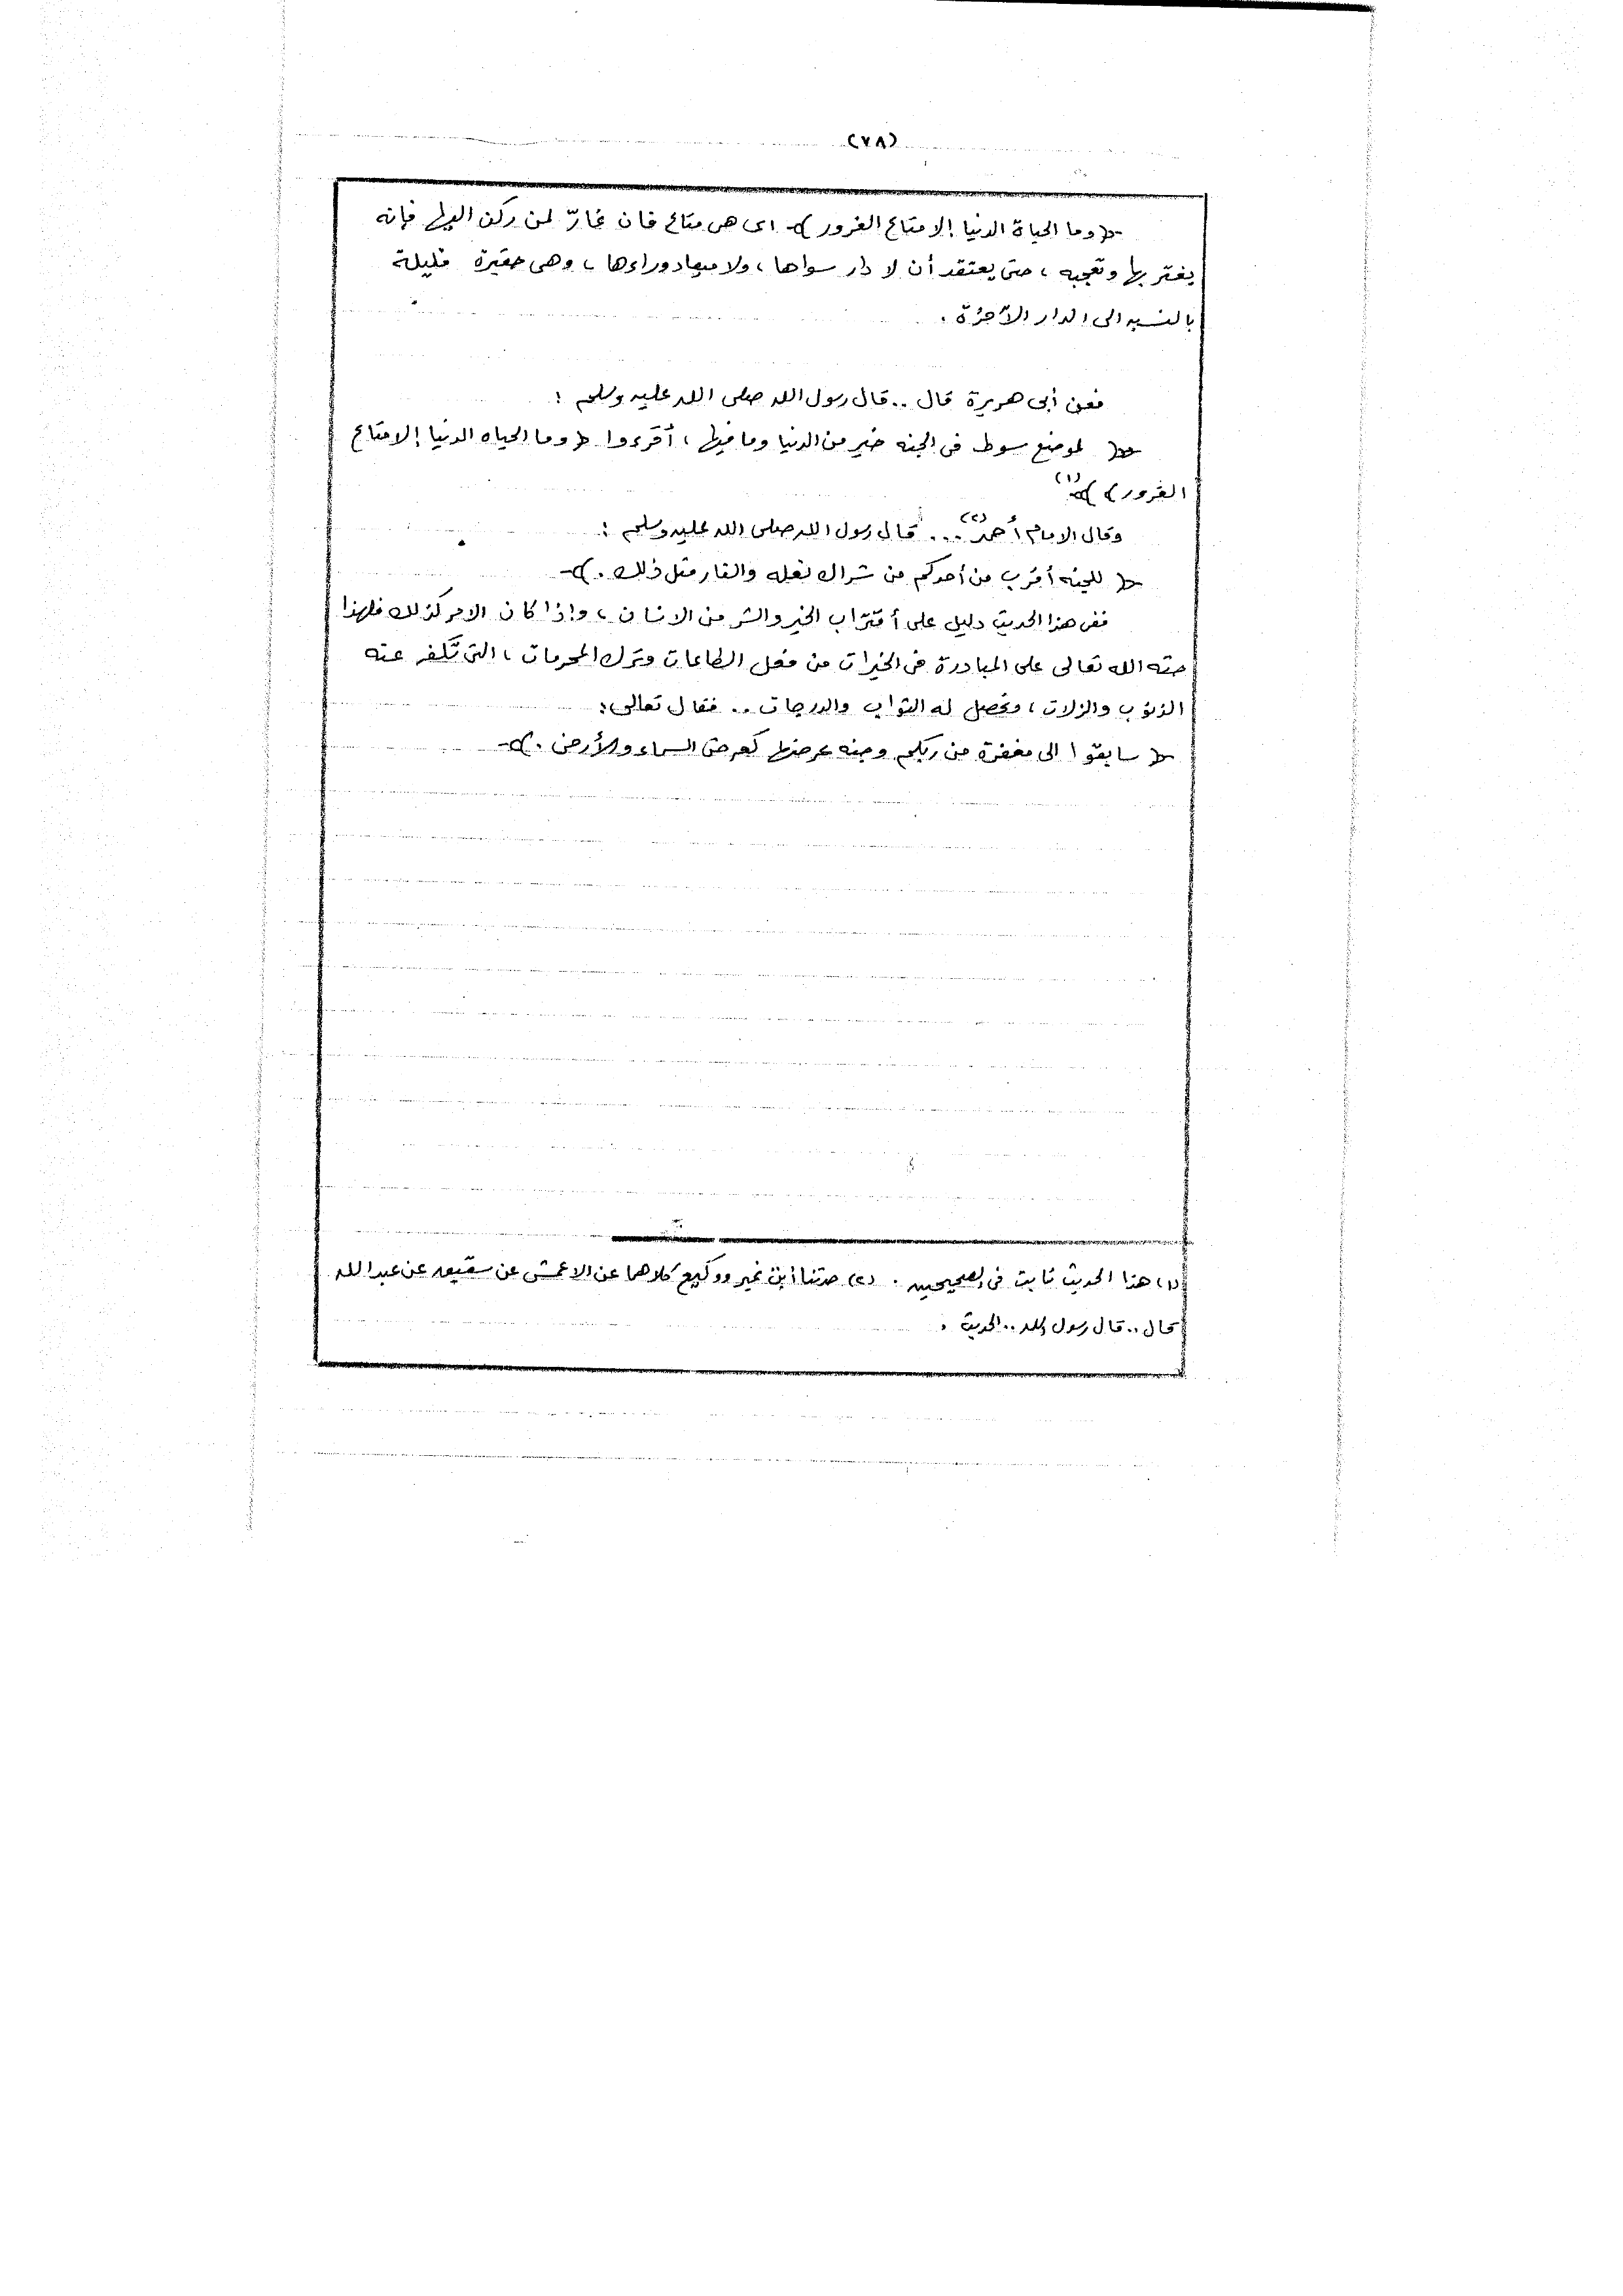 (٧٨)
﴿ وما الحياة الدنيا إلا متاع الغرور ﴾ اى هى متاع فان غارّ لمن ركن اليها فإنه
يغتر بها وتعجبه ، حتى يعتقد أن لا دار سواها ، ولا ميعاد وراءها ، وهى حقيرة قليلة
بالنسبه الى الدار الآخرة .
فعن أبى هريرة قال .. قال رسول الله صلى الله عليه وسلم :
« لموضع سوط فى الجنه خير من الدنيا وما فيها ، أقرءوا ﴿ وما الحياه الدنيا إلا متاع
الغرور ﴾ » (١)
وقال الامام أحمد (٢) ... قال رسول الله صلى الله عليه وسلم :
﴿ للجنه أقرب من أحدكم من شراك نعله والنار مثل ذلك . ﴾
ففى هذا الحديث دليل على أقتراب الخير والشر من الانسان ، وإذا كان الامر كذلك فلهذا
حثه الله تعالى على المبادرة فى الخيرات من فعل الطاعات وترك المحرمات ، التى تكفر عنه
الذنوب والزلات ، وتحصل له الثواب والدرجات .. فقال تعالى :
﴿ سابقوا الى مغفرة من ربكم وجنه عرضها كعرض السماء والأرض . ﴾
(١) هذا الحديث ثابت فى الصحيحين . (٢) حدثنا أبن نمير ووكيع كلاهما عن الاعمش عن سقيق عن عبد الله
قال .. قال رسول الله .. الحديث .